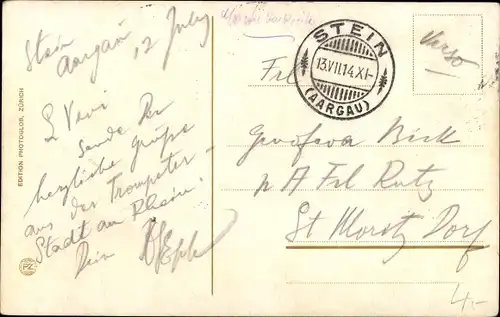 Stein
Aargau 12 July
L Vevi
Sende Dir
herzliche Grüsse
aus der Trompeter-
Stadt am Rhein.
Dein
EDITION PHOTOGLOB, ZÜRICH
PZ
STEIN
13.VII.14.XI-
(AARGAU)
Verso
Frl
Bick
p A Frl Rutz
St Moritz Dorf
4.-